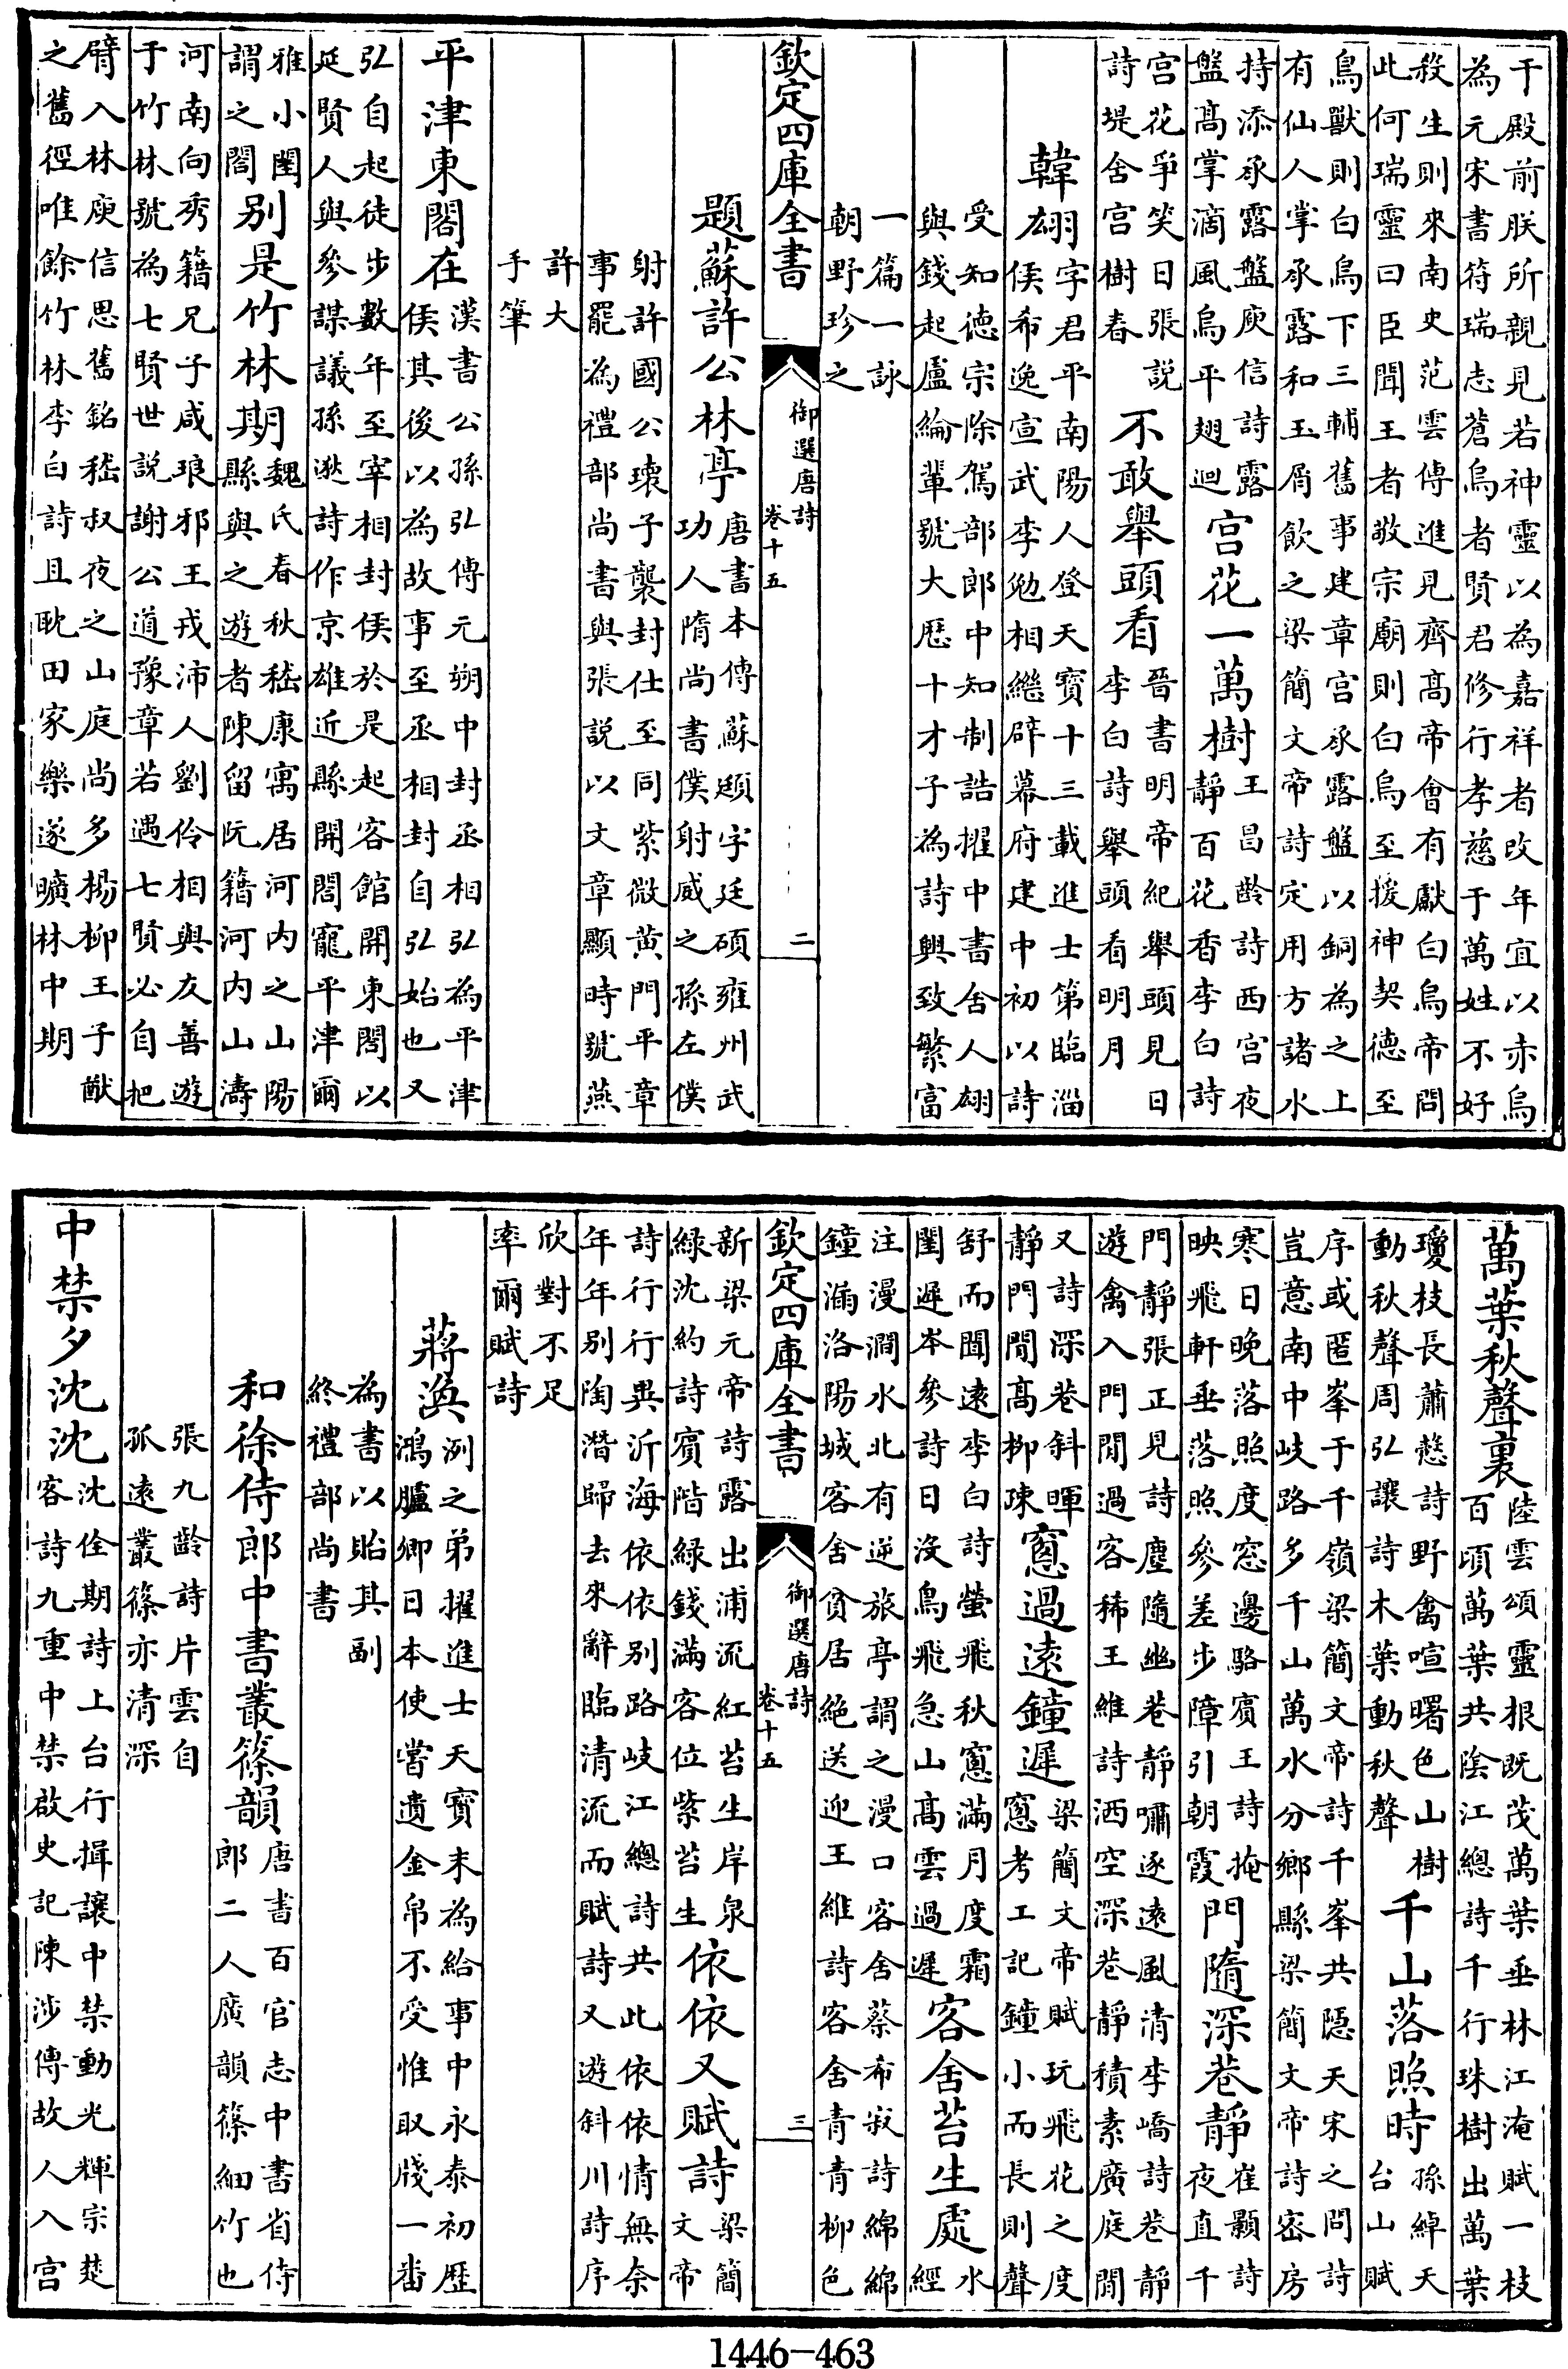 于殿前朕所親見若神靈以為嘉祥者改年宜以赤烏
為元宋書符瑞志蒼烏者賢君修行孝慈于萬姓不好
殺生則來南史范雲傳進見齊髙帝㑹有獻白烏帝問
此何瑞靈曰臣聞王者敬宗廟則白烏至援神契德至
鳥獸則白烏下三輔舊事建章宫承露盤以銅為之上
有仙人掌承露和玉屑飲之梁簡文帝詩定用方諸水
持添承露盤庾信詩露
盤髙掌滴風烏平翅迴
宫花一萬樹
王昌齡詩西宫夜
靜百花香李白詩
宫花爭笑日張説
詩堤舍宫樹春
不敢舉頭看
晋書明帝紀舉頭見日
李白詩舉頭看明月
韓翃
字君平南陽人登天寶十三載進士第臨淄
侯希逸宣武李勉相繼辟幕府建中初以詩
受知德宗除駕部郎中知制誥擢中書舍人翃
與錢起盧綸輩號大厯十才子為詩興致繁富
一篇一詠
朝野珍之
欽定四庫全書
御選唐詩
卷十五
二
題蘇許公林亭
唐書本傳蘇頲字廷碩雍州武
功人隋尚書僕射威之孫左僕
射許國公瓌子襲封仕至同紫微黄門平章
事罷為禮部尚書與張説以文章顯時號燕
許大
手筆
平津東閣在
漢書公孫弘傳元朔中封丞相弘為平津
侯其後以為故事至丞相封自弘始也又
弘自起徒步數年至宰相封侯於是起客館開東閣以
延賢人與參謀議孫逖詩作京雄近縣開閣寵平津爾
雅小閨
謂之閤
别是竹林期
魏氏春秋嵇康寓居河内之山陽
縣與之遊者陳留阮籍河内山濤
河南向秀籍兄子咸琅邪王戎沛人劉伶相與友善遊
于竹林號為七賢世説謝公道豫章若遇七賢必自把
臂入林庾信思舊銘嵇叔夜之山庭尚多楊柳王子猷
之舊徑唯餘竹林李白詩且耽田家樂遂曠林中期
萬葉秋聲裏
陸雲頌靈根既茂萬葉垂林江淹賦一枝
百頃萬葉共陰江總詩千行珠樹出萬葉
瓊枝長蕭慤詩野禽喧曙色山樹
動秋聲周弘讓詩木葉動秋聲
千山落照時
孫綽天
台山賦
序或匿峯于千嶺梁簡文帝詩千峯共隱天宋之問詩
豈意南中岐路多千山萬水分鄉縣梁簡文帝詩密房
寒日晚落照度窓邊駱賓王詩掩
映飛軒垂落照參差步障引朝霞
門隨深巷靜
崔顥詩
夜直千
門靜張正見詩塵隨幽巷靜嘯逐遠風清李嶠詩巷靜
遊禽入門閒過客稀王維詩洒空深巷靜積素廣庭閒
又詩深巷斜暉
靜門閒髙柳疎
窻過遠鐘遲
梁簡文帝賦玩飛花之度
窻考工記鐘小而長則聲
舒而聞遠李白詩螢飛秋窻滿月度霜
閨遲岑參詩日沒鳥飛急山髙雲過遲
客舍苔生處
水
經
注漫澗水北有逆旅亭謂之漫口客舍蔡布寂詩綿綿
鐘漏洛陽城客舍貧居絶送迎王維詩客舍青青柳色
欽定四庫全書
御選唐詩
卷十五
三
新梁元帝詩露出浦流紅苔生岸泉
緑沈約詩賓階緑錢滿客位紫苔生
依依又賦詩
梁簡
文帝
詩行行行異沂海依依别路岐江總詩共此依依情無奈
年年别陶潛歸去來辭臨清流而賦詩又遊斜川詩序
欣對不足
率爾賦詩
蔣渙
洌之弟擢進士天寶末為給事中永泰初歴
鴻臚卿日本使嘗遺金帛不受惟取牋一番
為書以貽其副
終禮部尚書
和徐侍郎中書叢篠韻
唐書百官志中書省侍
郎二人廣韻篠細竹也
張九齡詩片雲自
孤遠叢篠亦清深
中禁夕沈沈
沈佺期詩上台行揖讓中禁動光輝宗楚
客詩九重中禁啟史記陳涉傳故人入宫
1446-463